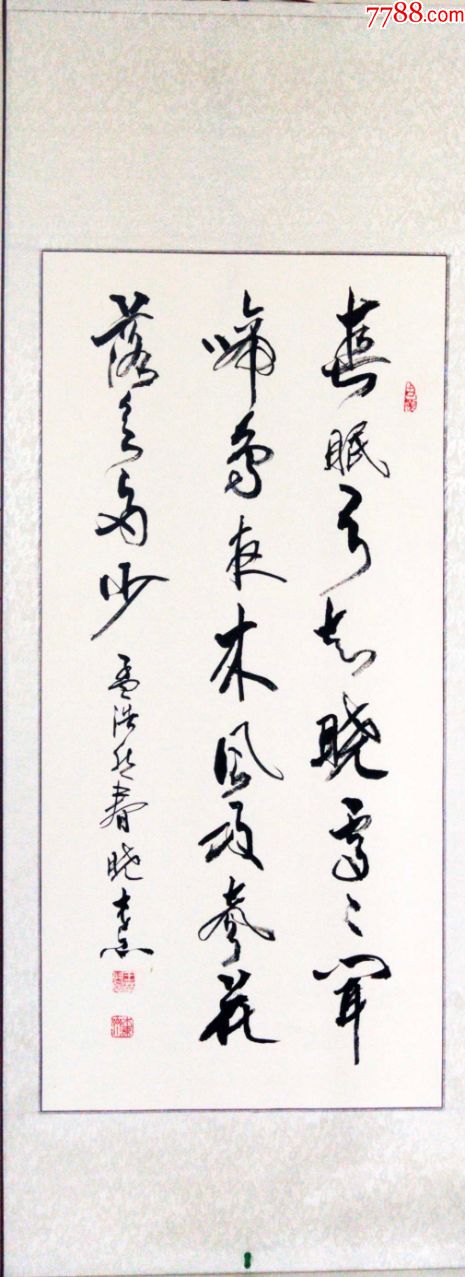 7788.com
春眠不知晓處々闻
啼鸟夜来风雨声花
落知多少 孟浩然春晓